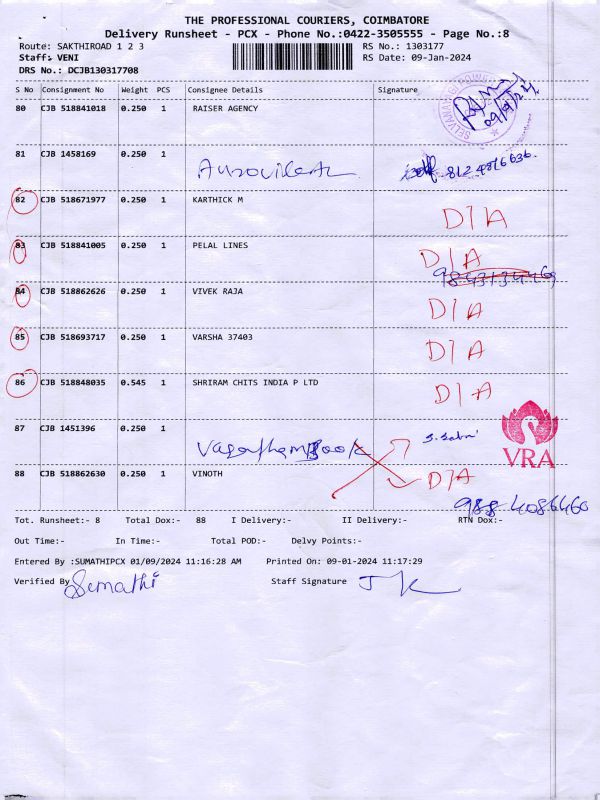 THE PROFESSIONAL COURIERS, COIMBATORE
Delivery Runsheet - PCX - Phone No.:0422-3505555 - Page No.:8
Route: SAKTHIROAD 1 2 3 RS No.: 1303177
Staff: VENI RS Date: 09-Jan-2024
DRS No.: DCJB130317708
S No Consignment No Weight PCS Consignee Details Signature
80 CJB 518841018 0.250 1 RAISER AGENCY 09/01/24
81 CJB 1458169 0.250 1 8124816636.
82 CJB 518671977 0.250 1 KARTHICK M D/A
83 CJB 518841005 0.250 1 PELAL LINES D/A
84 CJB 518862626 0.250 1 VIVEK RAJA D/A
85 CJB 518693717 0.250 1 VARSHA 37403 D/A
86 CJB 518848035 0.545 1 SHRIRAM CHITS INDIA P LTD D/A
87 CJB 1451396 0.250 1 Vasantham Book VRA
88 CJB 518862630 0.250 1 VINOTH D/A
988 4086460
Tot. Runsheet:- 8 Total Dox:- 88 I Delivery:- II Delivery:- RTN Dox:-
Out Time:- In Time:- Total POD:- Delvy Points:-
Entered By :SUMATHIPCX 01/09/2024 11:16:28 AM Printed On: 09-01-2024 11:17:29
Verified By Sumathi Staff Signature